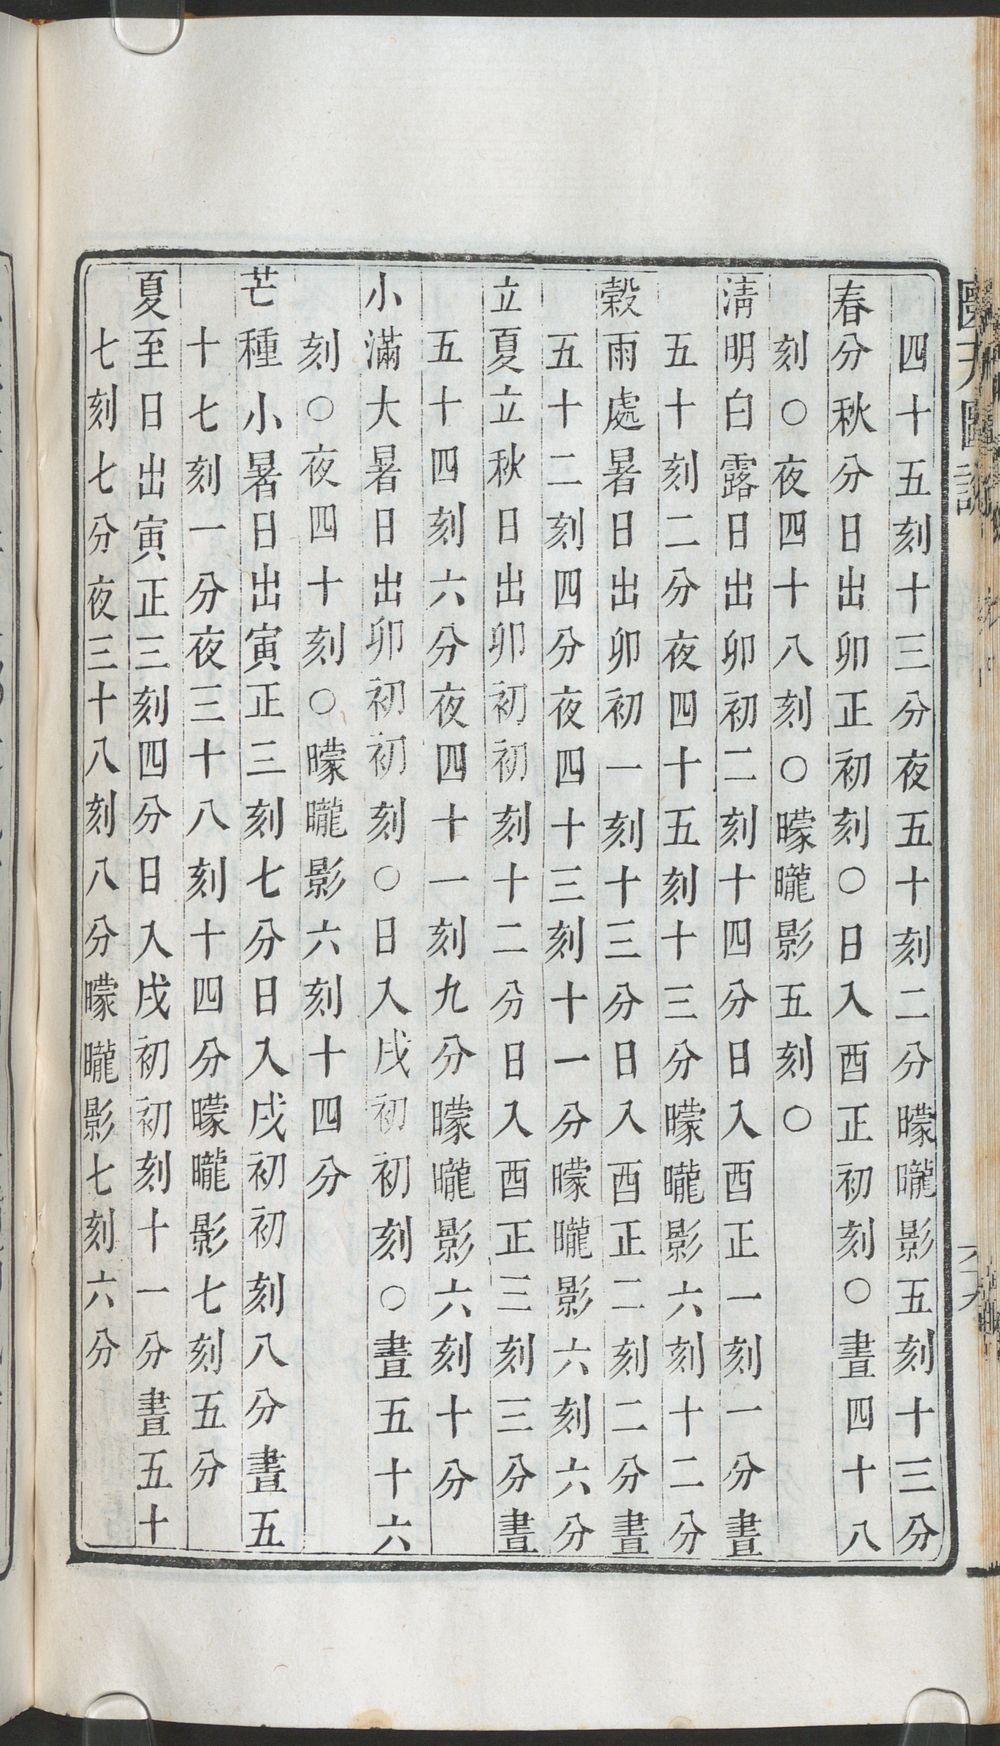 四十五刻十三分夜五十刻二分曚曨影五刻十三分
春分秋分日出卯正初刻○日入酉正初刻○晝四十八
刻○夜四十八刻○曚曨影五刻○
淸明白露日出卯初二刻十四分日入酉正一刻一分晝
五十刻二分夜四十五刻十三分曚曨影六刻十二分
穀雨處暑日出卯初一刻十三分日入酉正二刻二分晝
五十二刻四分夜四十三刻十一分曚曨影六刻六分
立夏立秋日出卯初初刻十二分日入酉正三刻三分晝
五十四刻六分夜四十一刻九分曚曨影六刻十分
小滿大暑日出卯初初刻○日入戌初初刻○晝五十六
刻○夜四十刻○曚曨影六刻十四分
芒種小暑日出寅正三刻七分日入戌初初刻八分晝五
十七刻一分夜三十八刻十四分曚曨影七刻五分
夏至日出寅正三刻四分日入戌初初刻十一分晝五十
七刻七分夜三十八刻八分曚曨影七刻六分